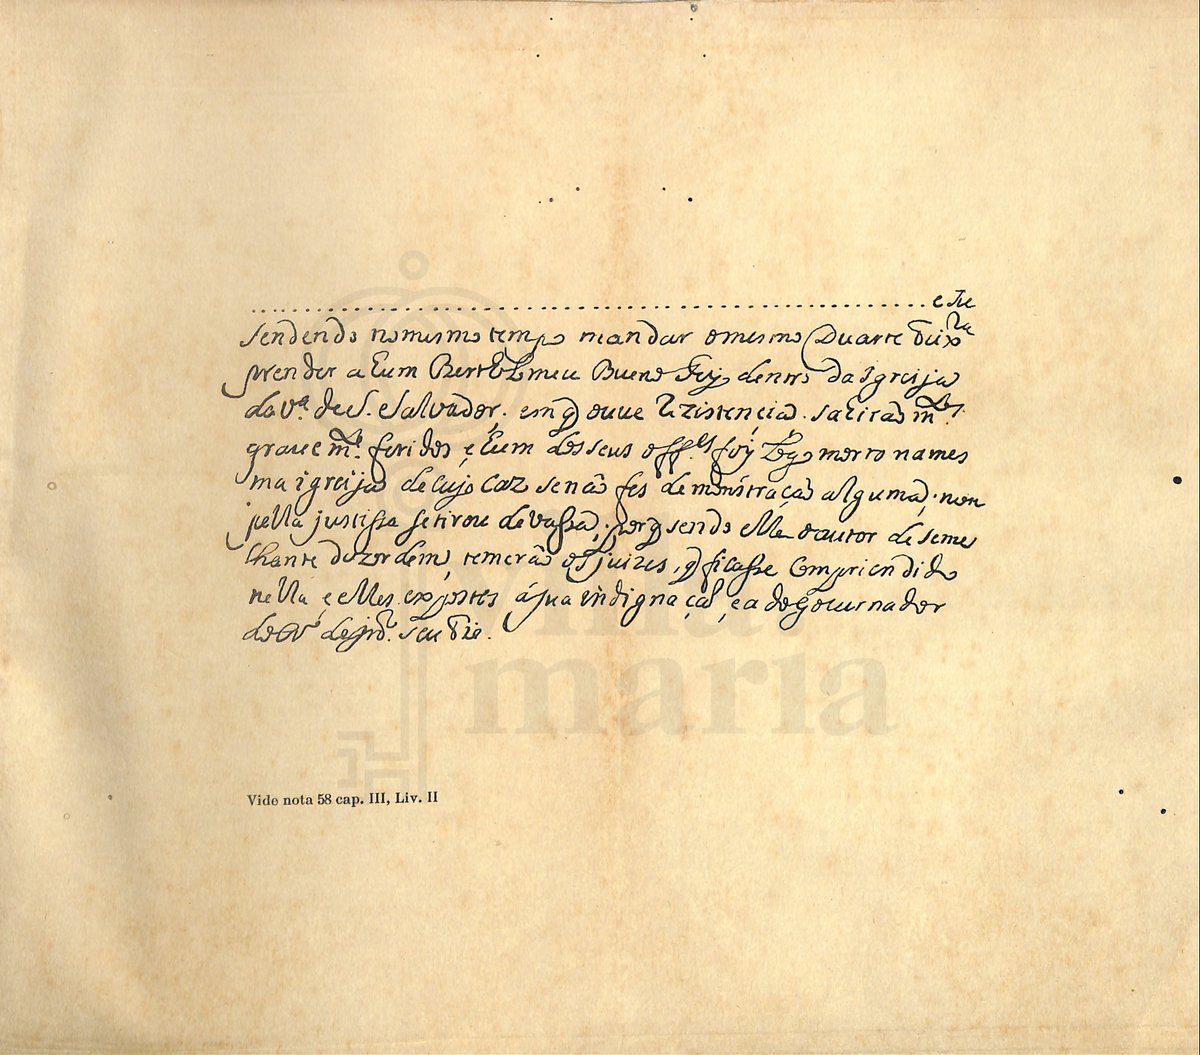 ........................................ e Tre
sendendo no mesmo tempo mandar o mesmo Duarte Teix.ra
prender a hum Bertholomeu Bueno Feyo dentro da Igreija
da v.a de S. Salvador, em q ouve rezistencia. sahirão m.tos
grave m.te feridos, e hum dos seus off.es foy logo morto na mes
ma igreija de cujo cazo se não fes demonstração alguma, nem
pella justissa se tirou devassa, porq sendo elle o autor de seme
lhante dezordem, temerão os juizes, q ficasse compriendido
nella, e elles expostos á sua indignação, e a do Governador
do R.o de Jan.ro seu Tio.
Vide nota 58 cap. III, Liv. II
maria